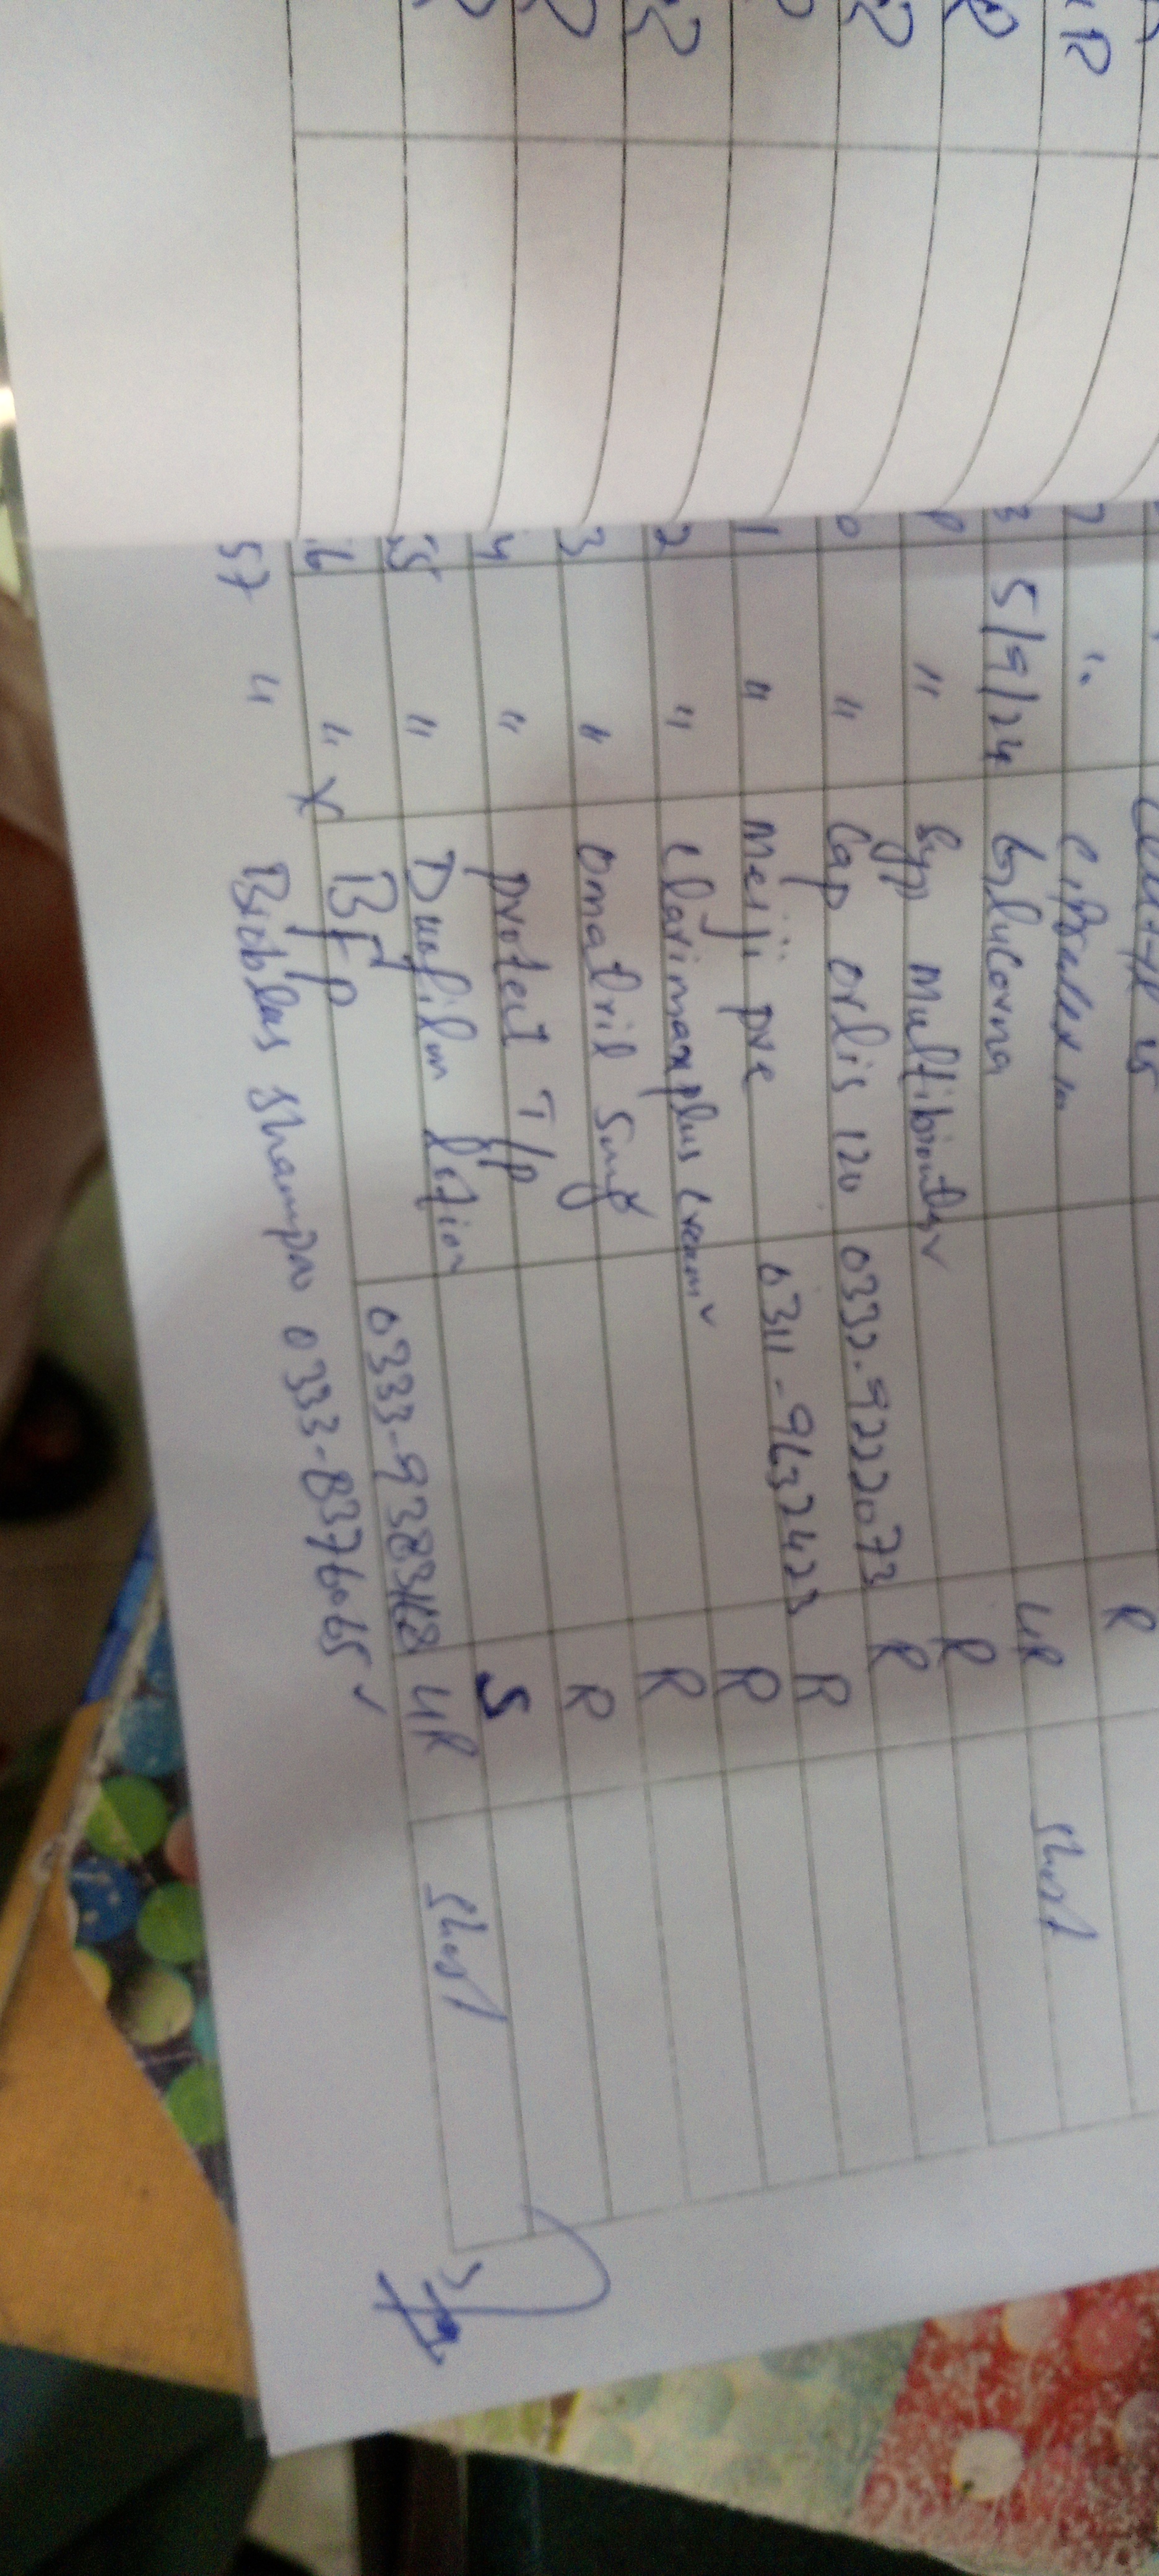 R
7 " R
8 5/9/24 Glucerna UR Short
9 " Syp Multibionta ✓ R
0 " Cap Orlis 120 0332-9222073 R
1 " Meiji pre 0311-9632423 R
2 " Clarimax plus Cream ✓ R
3 " Omatril 5mg R
4 " protect T/P R
55 " Duofilm lotion S
6 " X BFP 0333-9383168 UR Short
57 " Bioblas Shampo 0333-8376065 ✓